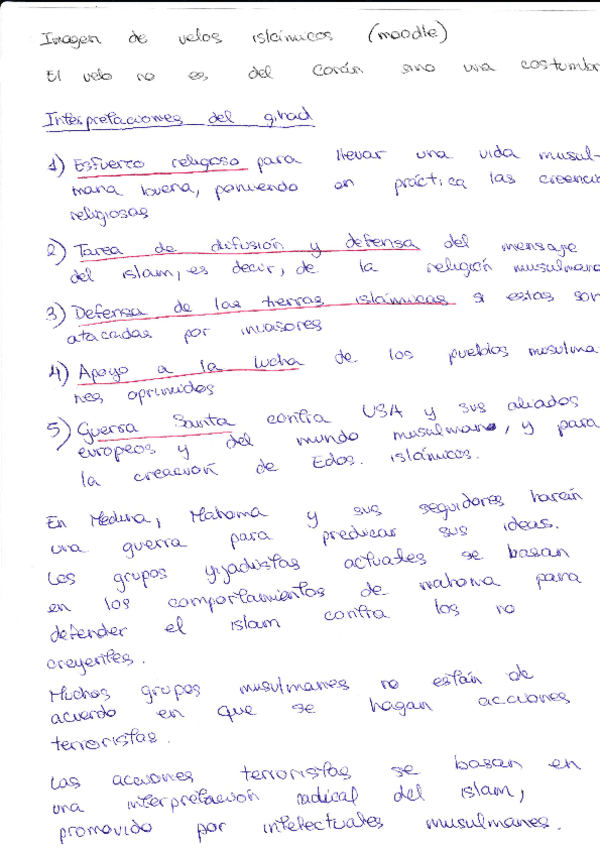 Imagen de velos islámicos (moodle)
El velo no es del Corán sino una costumbr
Interpretaciones del gihad
1) Esfuerzo religoso para llevar una vida musul-
mana buena, poniendo en práctica las creencia
religiosas
2) Tarea de difusión y defensa del mensaje
del islam, es decir, de la religión musulmana
3) Defensa de las tierras islámicas si estas son
atacadas por invasores
4) Apoyo a la lucha de los pueblos musulma-
nes oprimidos
5) Guerra Santa contra USA y sus aliados
europeos y del mundo musulmano, y para
la creación de Edos. islámicos.
En Medina, Mahoma y sus seguidores harán
una guerra para predicar sus ideas.
Los grupos yijadistas actuales se basan
en los comportamientos de mahoma para
defender el islam contra los no
creyentes.
Muchos grupos musulmanes no están de
acuerdo en que se hagan acciones
terroristas.
Las acciones terroristas se basan en
una interpretación radical del islam,
promovido por intelectuales musulmanes.